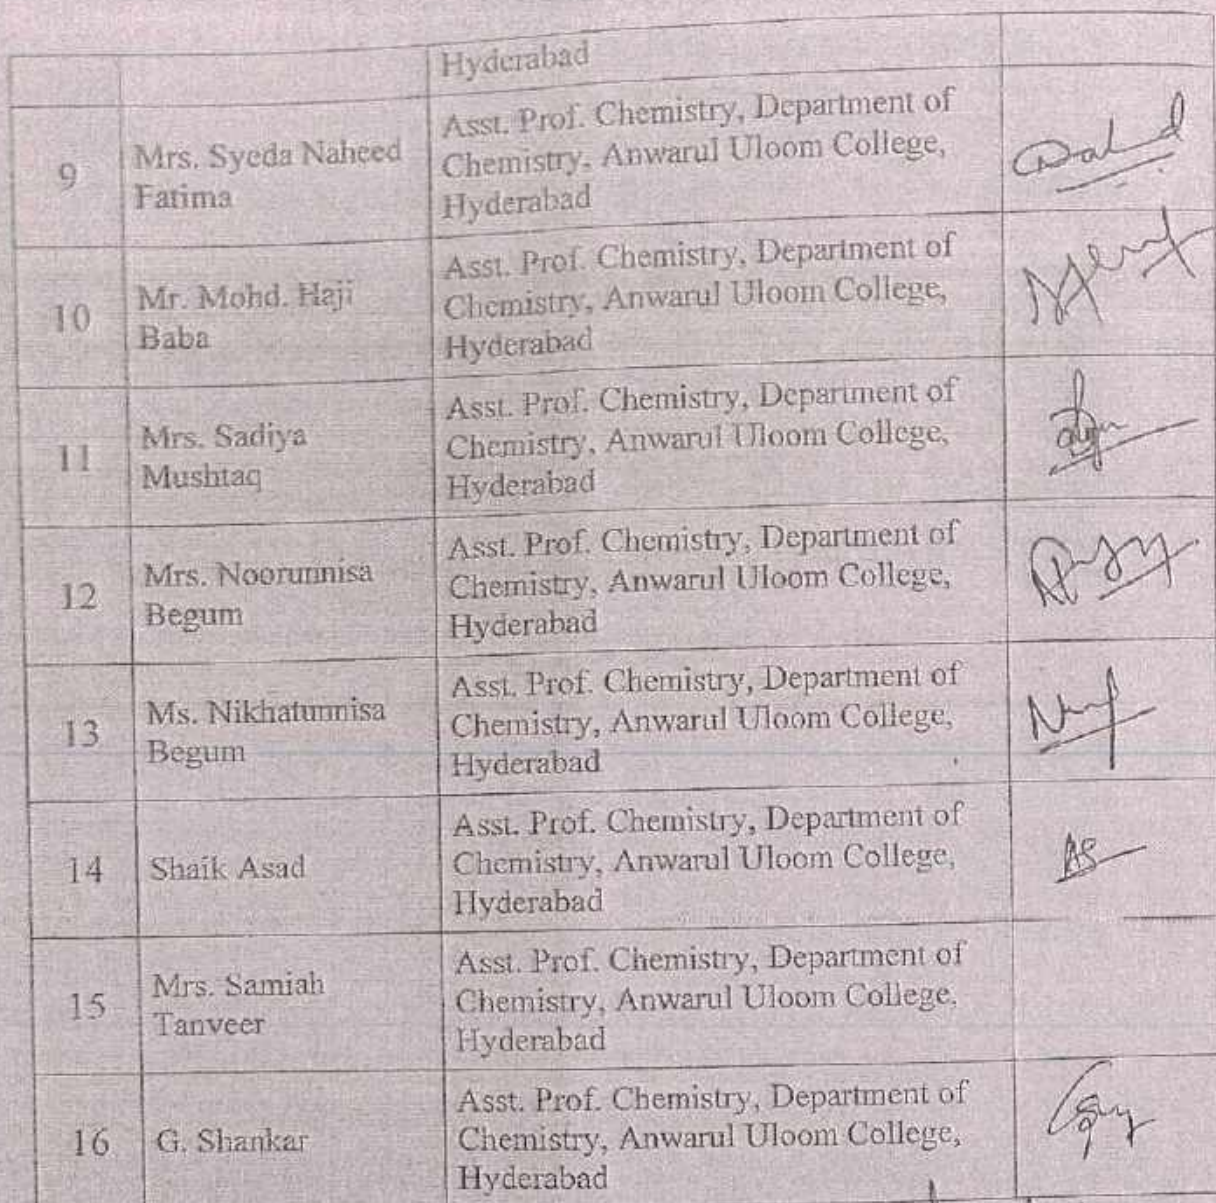 Hyderabad
9
Mrs. Syeda Naheed
Fatima
Asst. Prof. Chemistry, Department of
Chemistry, Anwarul Uloom College,
Hyderabad
10
Mr. Mohd. Haji
Baba
Asst. Prof. Chemistry, Department of
Chemistry, Anwarul Uloom College,
Hyderabad
11
Mrs. Sadiya
Mushtaq
Asst. Prof. Chemistry, Department of
Chemistry, Anwarul Uloom College,
Hyderabad
12
Mrs. Noorunnisa
Begum
Asst. Prof. Chemistry, Department of
Chemistry, Anwarul Uloom College,
Hyderabad
13
Ms. Nikhatunnisa
Begum
Asst. Prof. Chemistry, Department of
Chemistry, Anwarul Uloom College,
Hyderabad
14
Shaik Asad
Asst. Prof. Chemistry, Department of
Chemistry, Anwarul Uloom College,
Hyderabad
AS
15
Mrs. Samiah
Tanveer
Asst. Prof. Chemistry, Department of
Chemistry, Anwarul Uloom College,
Hyderabad
16
G. Shankar
Asst. Prof. Chemistry, Department of
Chemistry, Anwarul Uloom College,
Hyderabad